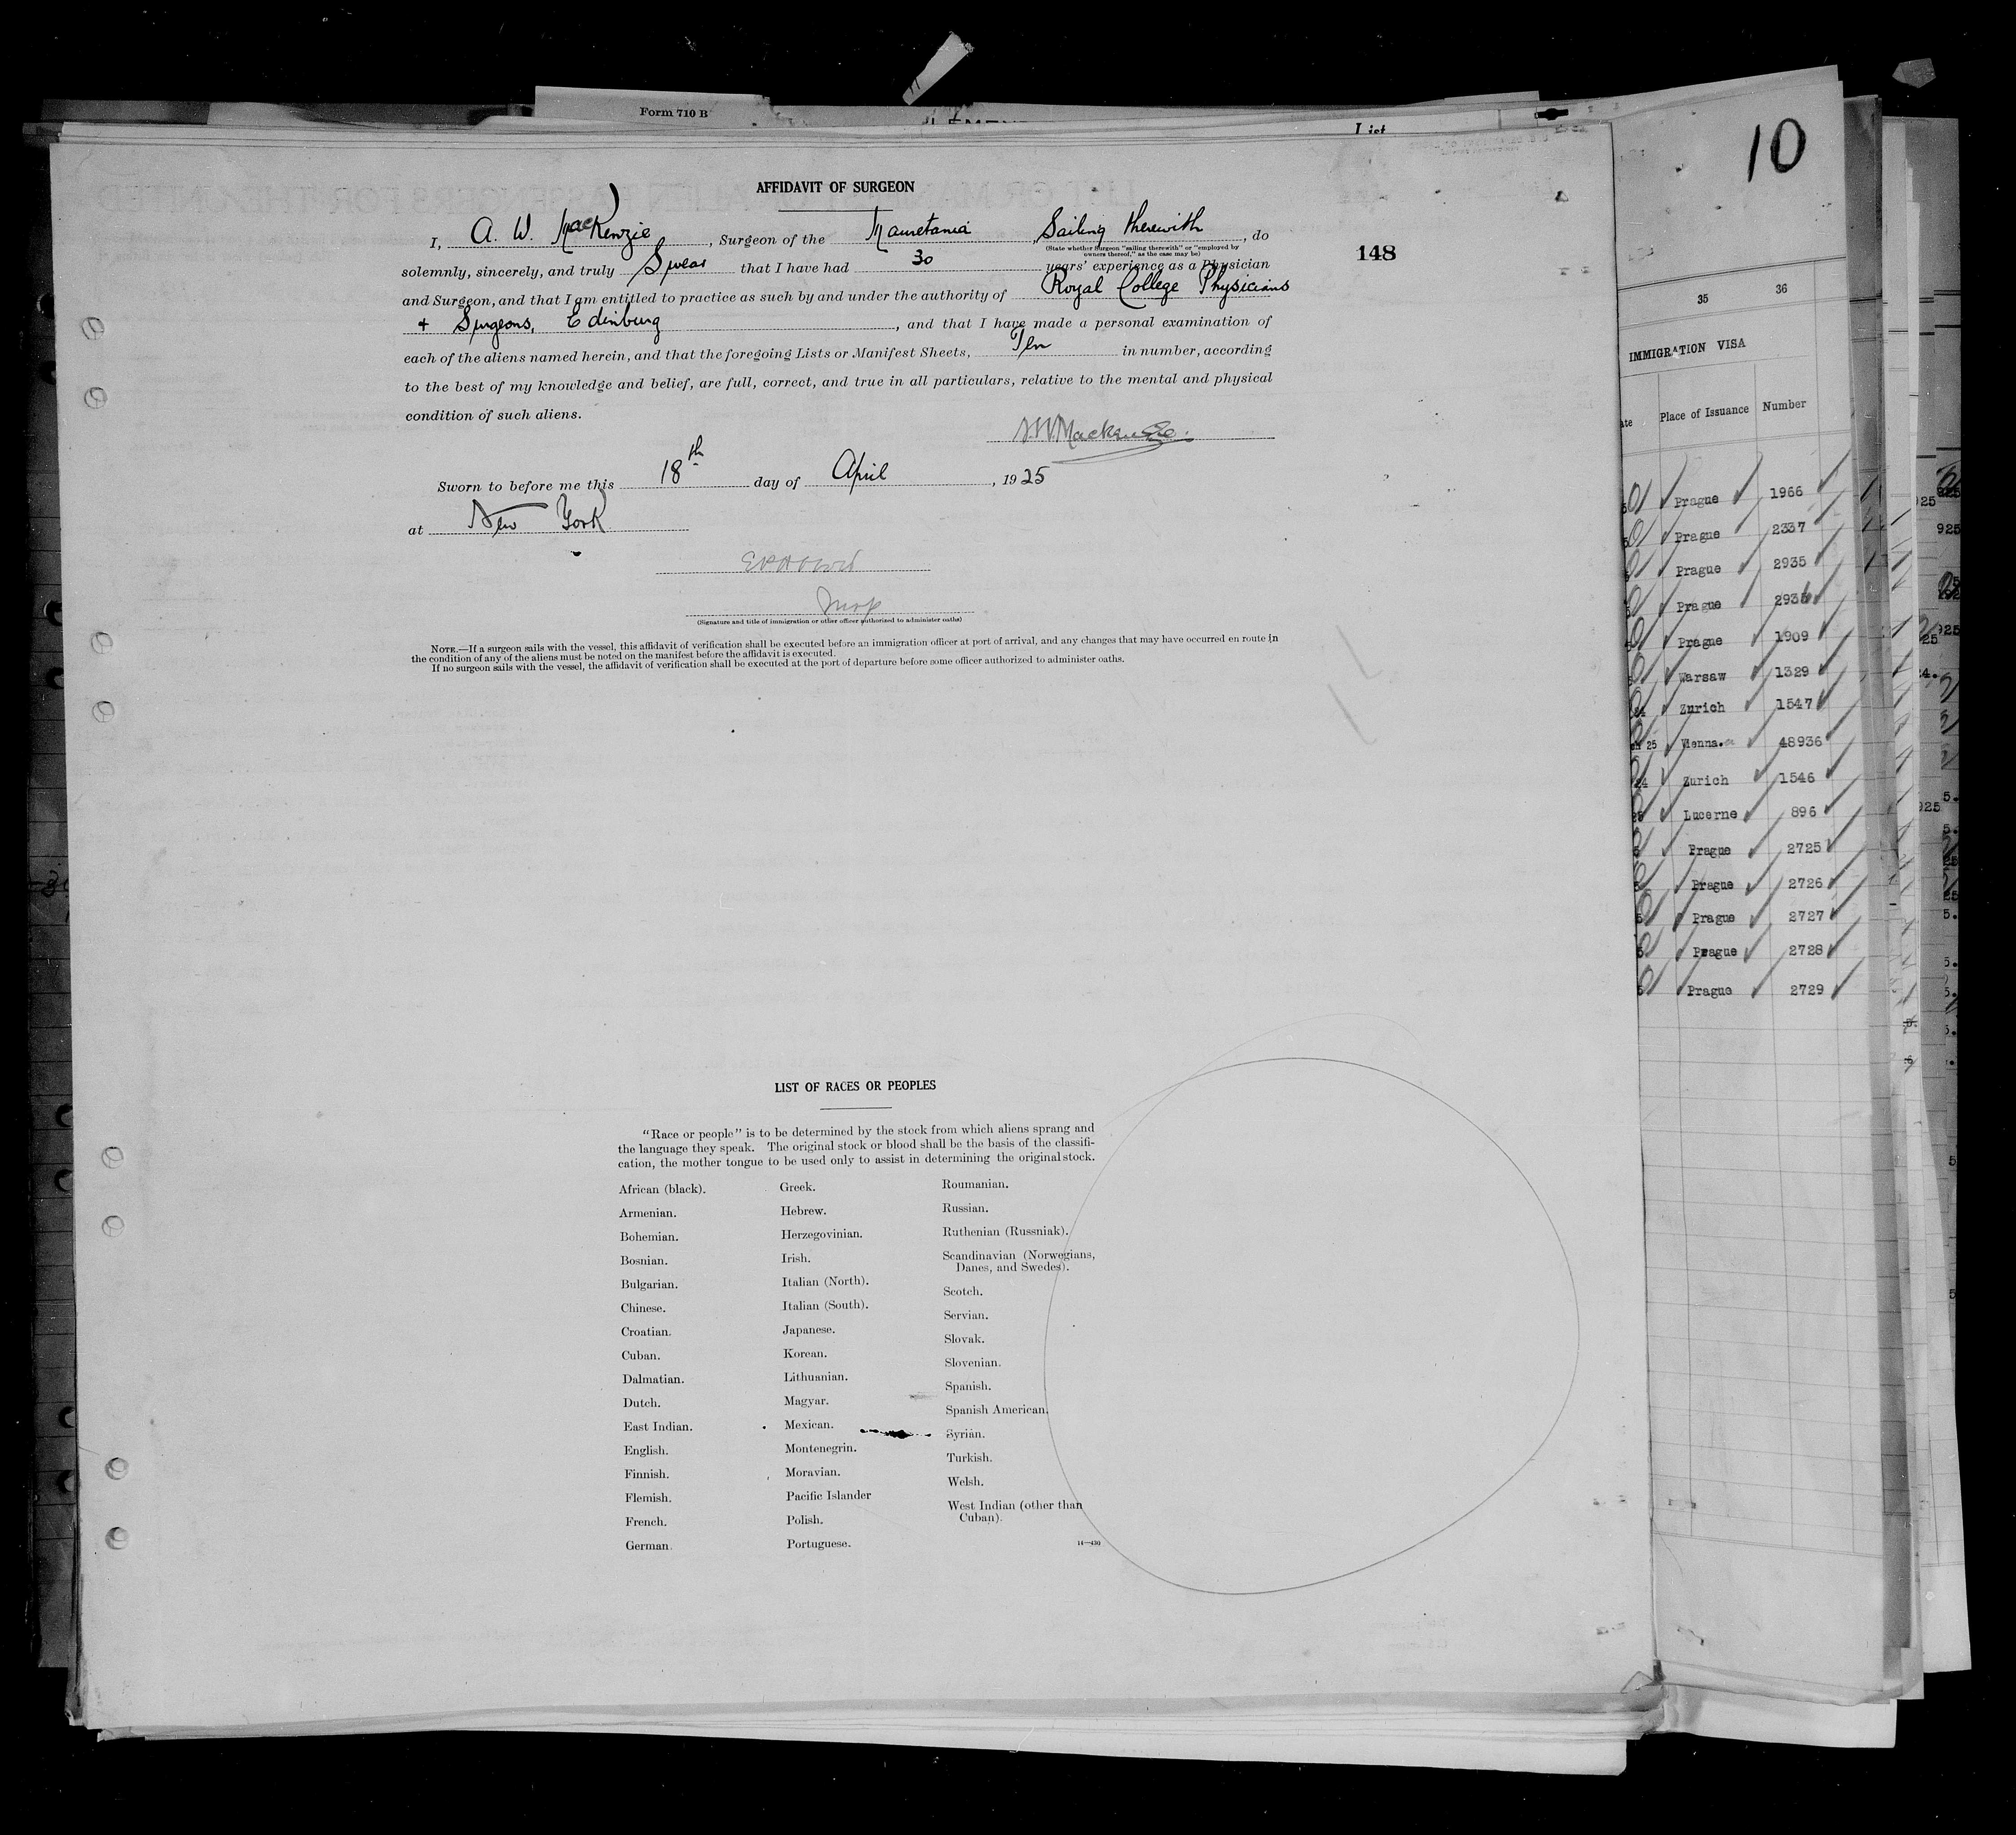 Form 710 B
List
10
AFFIDAVIT OF SURGEON
I, A. W. MacKenzie, Surgeon of the Mauretania, Sailing therewith, do
(State whether Surgeon "sailing therewith" or "employed by
owners thereof," as the case may be)
148
solemnly, sincerely, and truly Swear that I have had 30 years' experience as a Physician
and Surgeon, and that I am entitled to practice as such by and under the authority of Royal College Physicians
+ Surgeons, Edinburg, and that I have made a personal examination of
each of the aliens named herein, and that the foregoing Lists or Manifest Sheets, Ten in number, according
to the best of my knowledge and belief, are full, correct, and true in all particulars, relative to the mental and physical
condition of such aliens.
A.W. Mackenzie.
Sworn to before me this 18th day of April, 1925
at New York
(Signature and title of immigration or other officer authorized to administer oaths)
NOTE.—If a surgeon sails with the vessel, this affidavit of verification shall be executed before an immigration officer at port of arrival, and any changes that may have occurred en route in
the condition of any of the aliens must be noted on the manifest before the affidavit is executed.
If no surgeon sails with the vessel, the affidavit of verification shall be executed at the port of departure before some officer authorized to administer oaths.
LIST OF RACES OR PEOPLES
"Race or people" is to be determined by the stock from which aliens sprang and
the language they speak. The original stock or blood shall be the basis of the classifi-
cation, the mother tongue to be used only to assist in determining the original stock.
African (black).
Armenian.
Bohemian.
Bosnian.
Bulgarian.
Chinese.
Croatian.
Cuban.
Dalmatian.
Dutch.
East Indian.
English.
Finnish.
Flemish.
French.
German.
Greek.
Hebrew.
Herzegovinian.
Irish.
Italian (North).
Italian (South).
Japanese.
Korean.
Lithuanian.
Magyar.
Mexican.
Montenegrin.
Moravian.
Pacific Islander
Polish.
Portuguese.
Roumanian.
Russian.
Ruthenian (Russniak).
Scandinavian (Norwegians,
Danes, and Swedes).
Scotch.
Servian.
Slovak.
Slovenian.
Spanish.
Spanish American.
Syrian.
Turkish.
Welsh.
West Indian (other than
Cuban).
14—430
35 36
IMMIGRATION VISA
Place of Issuance Number
Prague 1966
Prague 2337
Prague 2935
Prague 2936
Prague 1909
Warsaw 1329
Zurich 1547
Vienna. 48936
Zurich 1546
Lucerne 896
Prague 2725
Prague 2726
Prague 2727
Prague 2728
Prague 2729